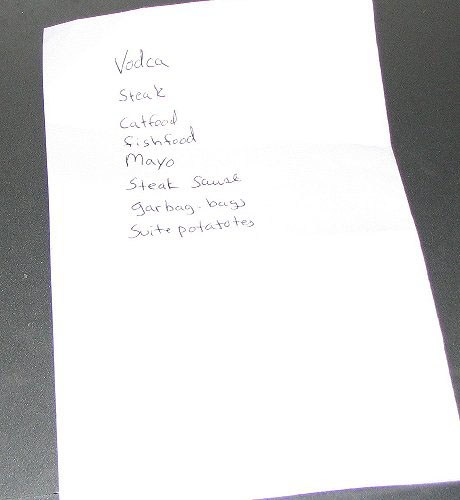 Vodca
Steak
Catfood
fishfood
Mayo
Steak Sause
garbag-bags
Suite potatotes